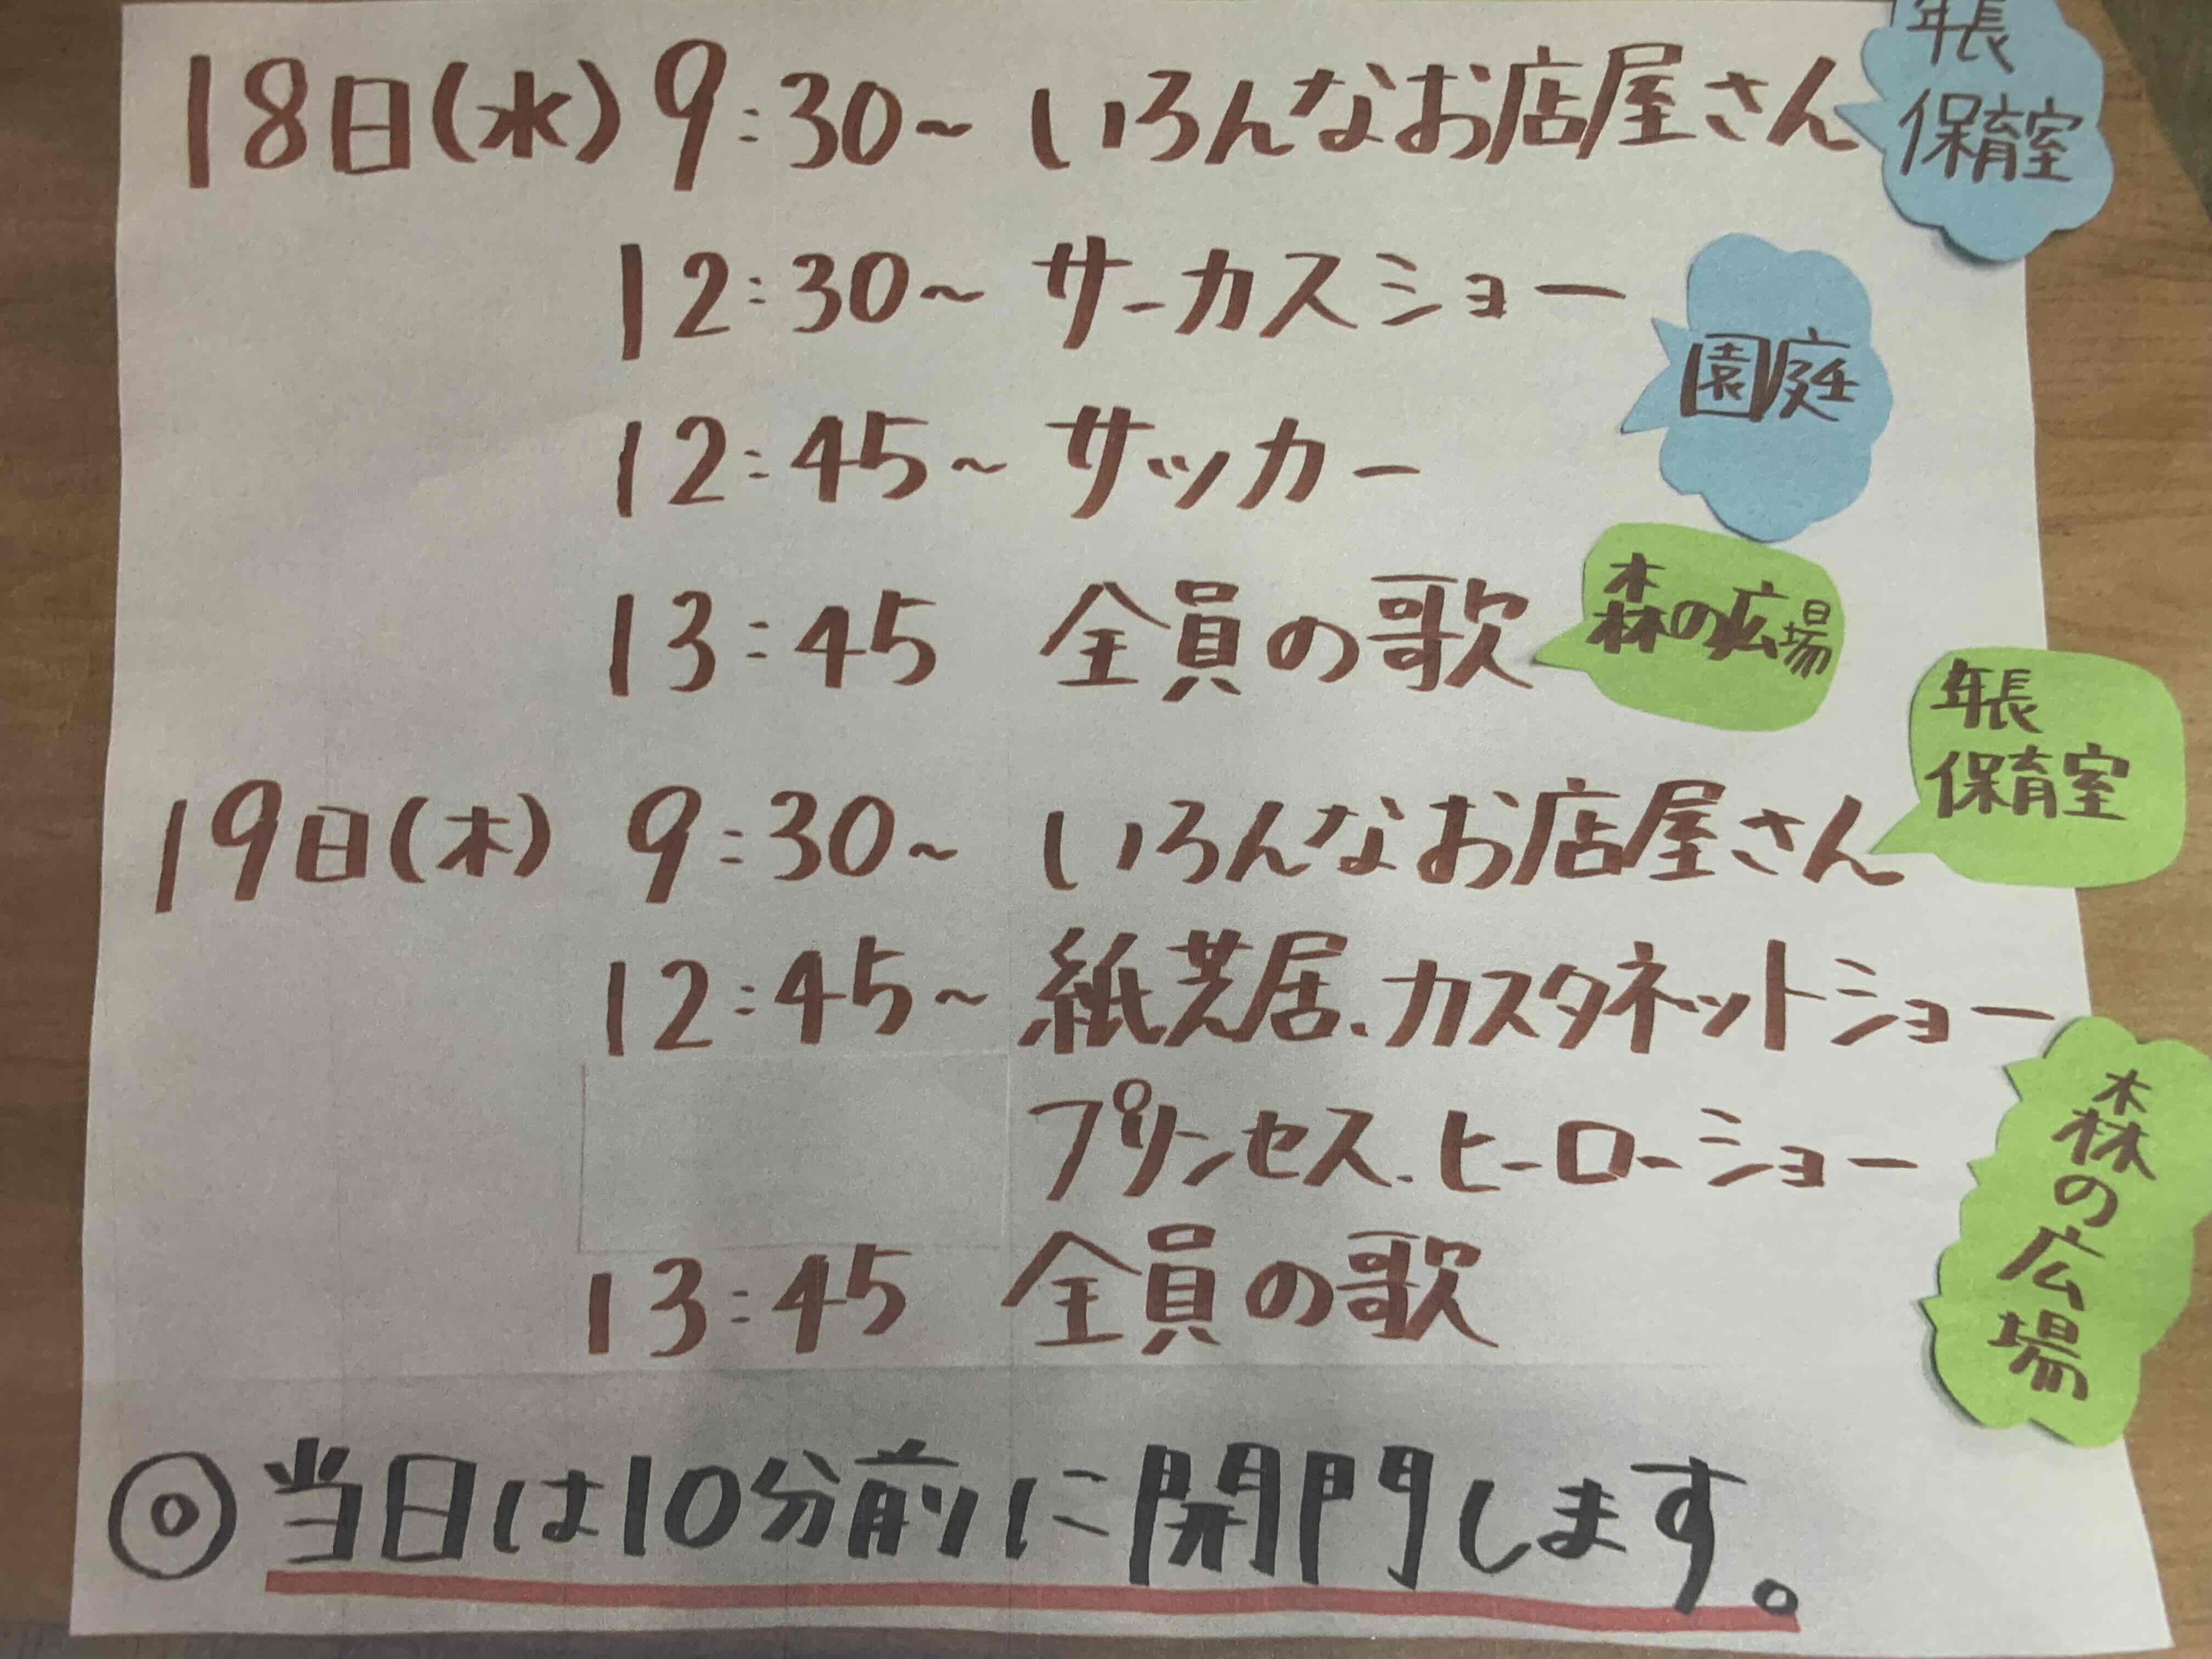 18日(水) 9:30~ いろんなお店屋さん
年長
保育室
12:30~ サーカスショー
園庭
12:45~ サッカー
13:45 全員の歌
森の広場
19日(木) 9:30~ いろんなお店屋さん
年長
保育室
12:45~ 紙芝居、カスタネットショー
プリンセス、ヒーローショー
森の広場
13:45 全員の歌
◎当日は10分前に開門します。